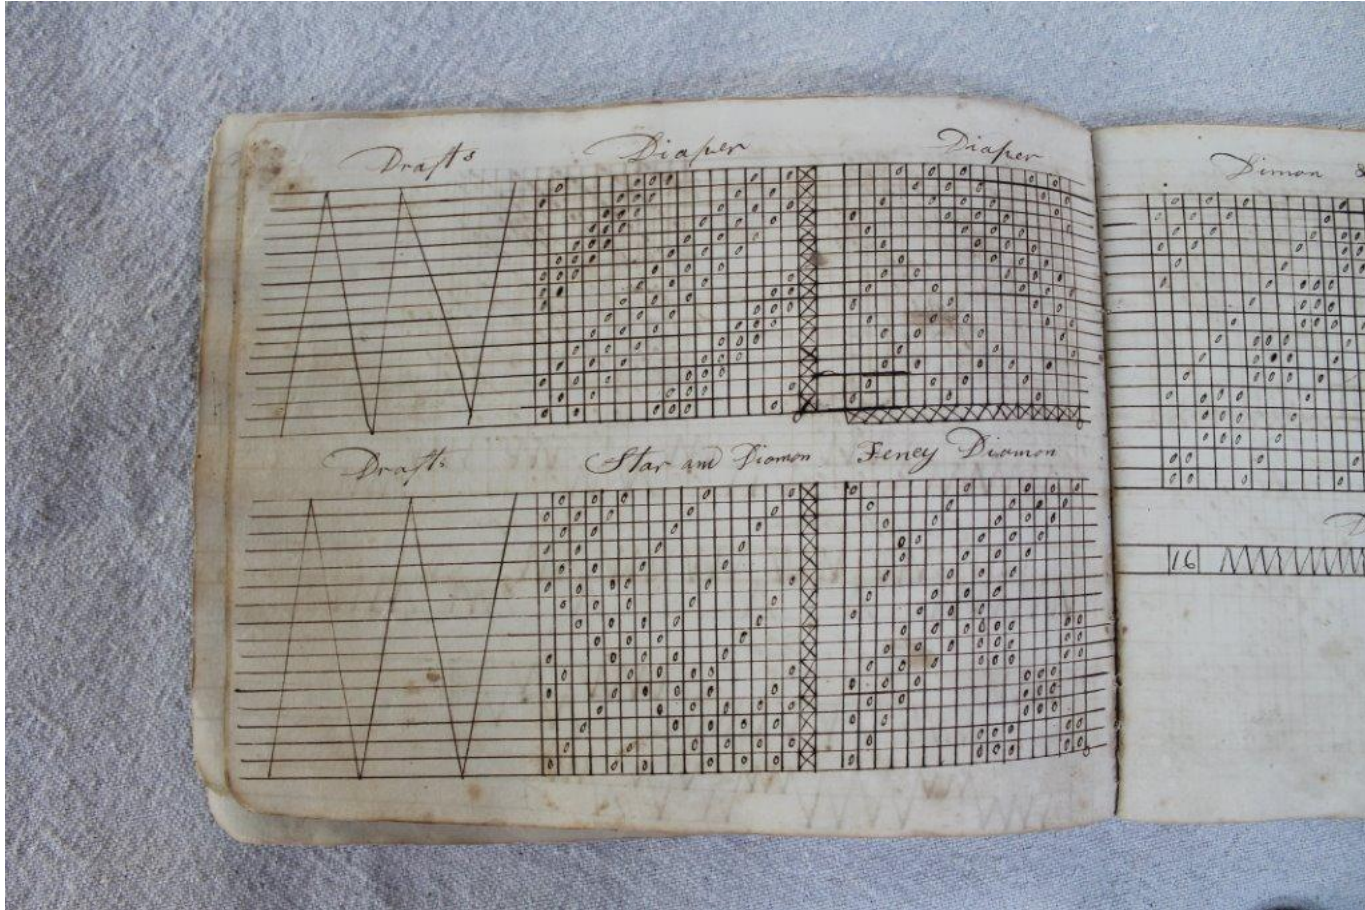 Drafts Diaper Diaper
Drafts Star and Diamon Feney Diamon
Dimon
16